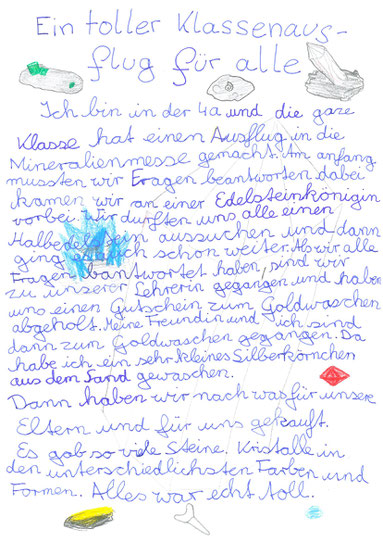 Ein toller Klassenaus-
flug für alle
Ich bin in der 4a und die gaze
Klasse hat einen Ausflug in die
Mineralienmesse gemacht. Am anfang
mussten wir Fragen beantworten dabei
kamen wir an einer Edelsteinkönigin
vorbei Wir durften uns alle einen
Halbedelstein aussuchen und dann
ging es auch schon weiter. Als wir alle
Fragen bantwortet haben, sind wir
zu unserer Lehrerin gegangen und haben
uns einen Gutschein zum Goldwaschen
abgeholt. Meine Freundin und ich sind
dann zum Goldwaschen gegangen. Da
habe ich ein sehr kleines Silberkörnchen
aus dem Sand gewaschen.
Dann haben wir noch was für unsere
Eltern und für uns gekauft.
Es gab so viele Steine. Kristalle in
den unterschiedlichsten Farben und
Formen. Alles war echt toll.